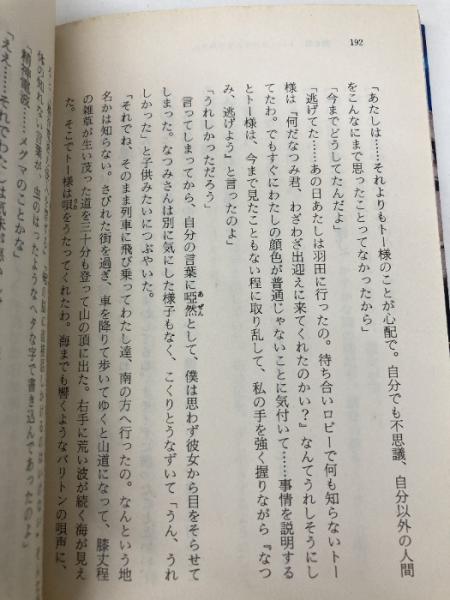 192
「あたしは……それよりもトー様のことが心配で。自分でも不思議、自分以外の人間
をこんなにまで思ったことってなかったから」
「今までどうしてたんだよ」
「逃げてた……あの日あたしは羽田に行ったの。待ち合いロビーで何も知らないトー
様は『何だなつみ君、わざわざ出迎えに来てくれたのかい?』なんてうれしそうにし
てたわ。でもすぐにわたしの顔色が普通じゃないことに気付いて……事情を説明する
とトー様は、今まで見たこともない程に取り乱して、私の手を強く握りながら『なつ
み、逃げよう』と言ったのよ」
「うれしかっただろう」
言ってしまってから、自分の言葉に啞然として、僕は思わず彼女から目をそらせて
しまった。なつみさんは別に気にした様子もなく、こくりとうなずいて「うん、うれ
しかった」と子供みたいにつぶやいた。
「それでね、そのまま列車に飛び乗ってわたし達、南の方へ行ったの。なんという地
名かは知らない。さびれた街を過ぎ、車を降りて歩いてゆくと山道になって、膝丈程
の雑草が生い茂った道を三十分も登って山の頂に出た。右手に荒い波が続く海が見え
た。そこでトー様は唄をうたってくれたわ。海までも響くようなバリトンの唄声に、
体の知れない言葉が、虫のはったようなヘタな字で書き込んであったのよ
「精神電波……メグマのことかな」
「ええ……それでわたしは気味が悪く